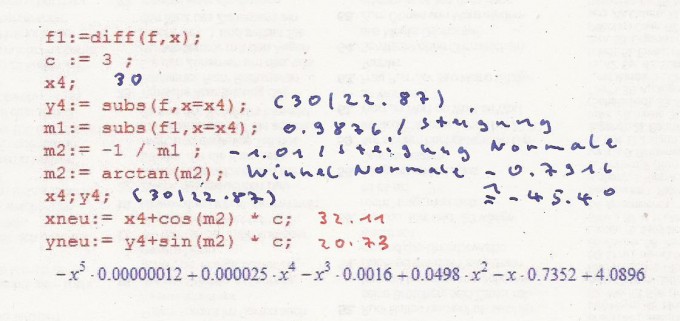 f1:=diff(f,x);
c := 3 ;
x4; 30
y4:= subs(f,x=x4); (30|22.87)
m1:= subs(f1,x=x4); 0.9876 / Steigung
m2:= -1 / m1 ; -1.01 / Steigung Normale
m2:= arctan(m2); Winkel Normale -0.7916
x4;y4; (30|22.87) ≙ -45.4°
xneu:= x4+cos(m2) * c; 32.11
yneu:= y4+sin(m2) * c; 20.73
−x⁵·0.00000012 + 0.000025·x⁴ − x³·0.0016 + 0.0498·x² − x·0.7352 + 4.0896